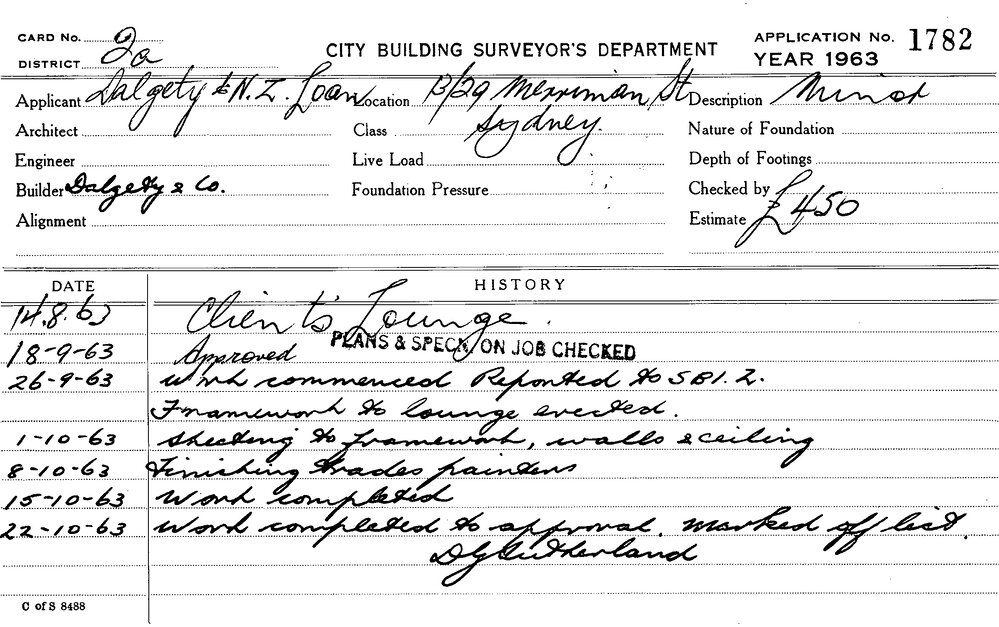 CARD No. 2a
DISTRICT
CITY BUILDING SURVEYOR'S DEPARTMENT
APPLICATION No. 1782
YEAR 1963
Applicant Dalgety & N.Z. Loan Location 13/29 Merriman St Description Minor
Architect Class Sydney. Nature of Foundation
Engineer Live Load Depth of Footings
Builder Dalgety & Co. Foundation Pressure Checked by
Alignment Estimate £450
DATE HISTORY
14.8.63 Client's Lounge.
18-9-63 Approved PLANS & SPECN. ON JOB CHECKED
26-9-63 Work commenced Reported to SBI. 2.
Framework to lounge erected.
1-10-63 Sheeting to framework, walls & ceiling
8-10-63 Finishing trades painters
15-10-63 Work completed
22-10-63 Work completed to approval. Marked off list.
DG Sutherland
C of S 8488